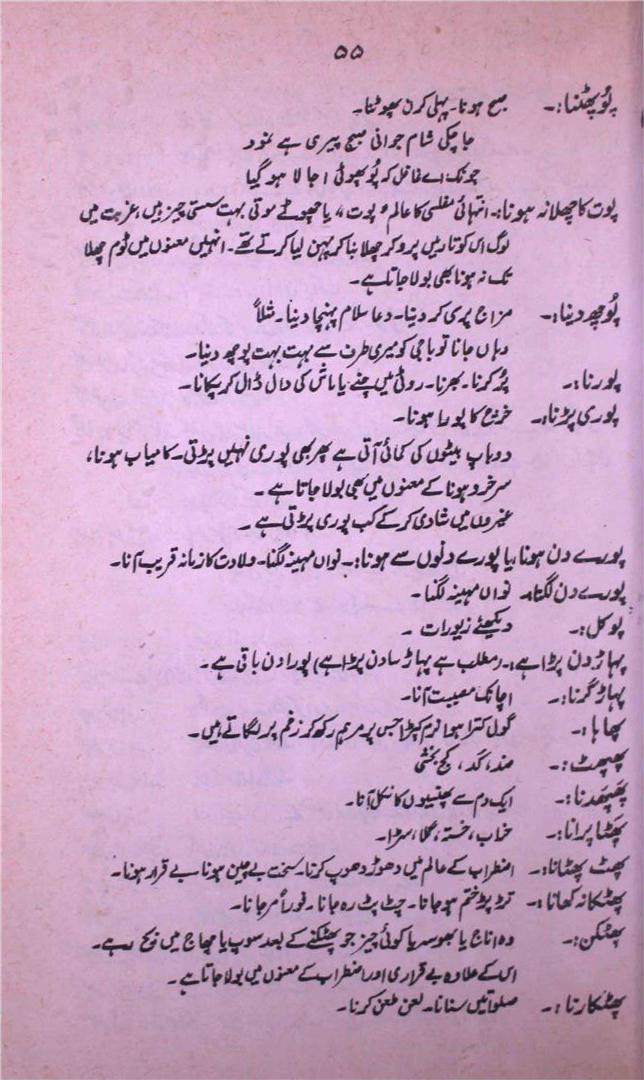 ۵۵
پَو پھٹنا:۔ صبح ہونا۔ پہلی کرن پھوٹنا۔
جا چکی شام جوانی صبح پیری ہے نمود
چونک اے غافل کہ پَو پھوٹی اجالا ہو گیا
پوت کا چھلا نہ ہونا:۔ انتہائی مفلسی کا عالم، پوت، یا چھوٹے موتی بہت سستی چیز ہیں، غربت میں
لوگ اس کو تار میں پرو کر چھلا بنا کر پہن لیا کرتے تھے۔ انہیں معنوں میں ٹوم چھلا
تک نہ ہونا بھی بولا جاتا ہے۔
پُوچھ دینا:۔ مزاج پرسی کر دینا۔ دعا سلام پہنچا دینا۔ مثلاً
وہاں جانا تو باجی کو میری طرف سے بہت بہت پوچھ دینا۔
پورنا:۔ پُر کرنا۔ بھرنا۔ روٹی میں چنے یا ماش کی دال ڈال کر پکانا۔
پوری پڑنا:۔ خرچ کا پورا ہونا۔
دو باپ بیٹوں کی کمائی آتی ہے پھر بھی پوری نہیں پڑتی۔ کامیاب ہونا،
سرخرو ہونا کے معنوں میں بھی بولا جاتا ہے۔
غیروں میں شادی کر کے کب پوری پڑتی ہے۔
پورے دن ہونا یا پورے دنوں سے ہونا:۔ نواں مہینہ لگنا۔ ولادت کا زمانہ قریب آنا۔
پورے دن لگنا:۔ نواں مہینہ لگنا۔
پوکل:۔ دیکھئے زیورات۔
پہاڑ دن پڑا ہے:۔ (مطلب ہے پہاڑ سا دن پڑا ہے) پورا دن باقی ہے۔
پہاڑ گرنا:۔ اچانک مصیبت آنا۔
پھاہا:۔ گول کترا ہوا نرم کپڑا جس پر مرہم رکھ کر زخم پر لگاتے ہیں۔
ضد، کد، کج بحثی
ایک دم سے پھنسیوں کا نکل آنا۔
پھٹا پرانا:۔ خراب، خستہ، گلا، سڑا۔
اضطراب کے عالم میں دھوڑ دھوپ کرنا۔ سخت بے چین ہونا۔ بے قرار ہونا۔
پھٹکا نہ کھانا:۔ تڑ پڑ ختم ہو جانا۔ چٹ پٹ رہ جانا۔ فوراً مر جانا۔
پھٹکن:۔ وہ اناج یا بھوسہ یا کوئی چیز جو پھٹکنے کے بعد سوپ یا چھاج میں بچ رہے۔
اس کے علاوہ بے قراری اور اضطراب کے معنوں میں بولا جاتا ہے۔
پھٹکارنا:۔ صلواتیں سنانا۔ لعن طعن کرنا۔